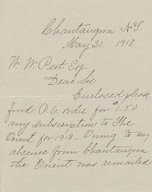 Chautauqua N.Y.
May 31 1913
W. W. Past Esq.
Dear Sir
Enclosed please
find P.O. order for $1.50
my subscription to The
Orient for 1913. Owing to my
absence from Chautauqua
the Orient was remailed